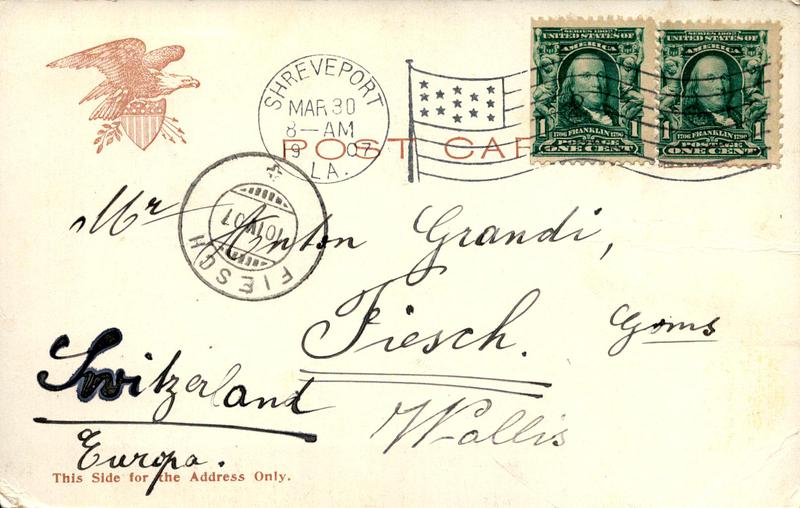 SHREVEPORT
MAR 30
8—AM
9 07
LA.
POST CAR
SERIES 1902
UNITED STATES OF
AMERICA
1 1706 FRANKLIN 1790 1
POSTAGE
ONE CENT
SERIES 1902
UNITED STATES OF
AMERICA
1 1706 FRANKLIN 1790 1
POSTAGE
ONE CENT
10 IV 07
FIESCH
Mr Anton Grandi,
Fiesch. Goms
Switzerland
Wallis
Europa.
This Side for the Address Only.